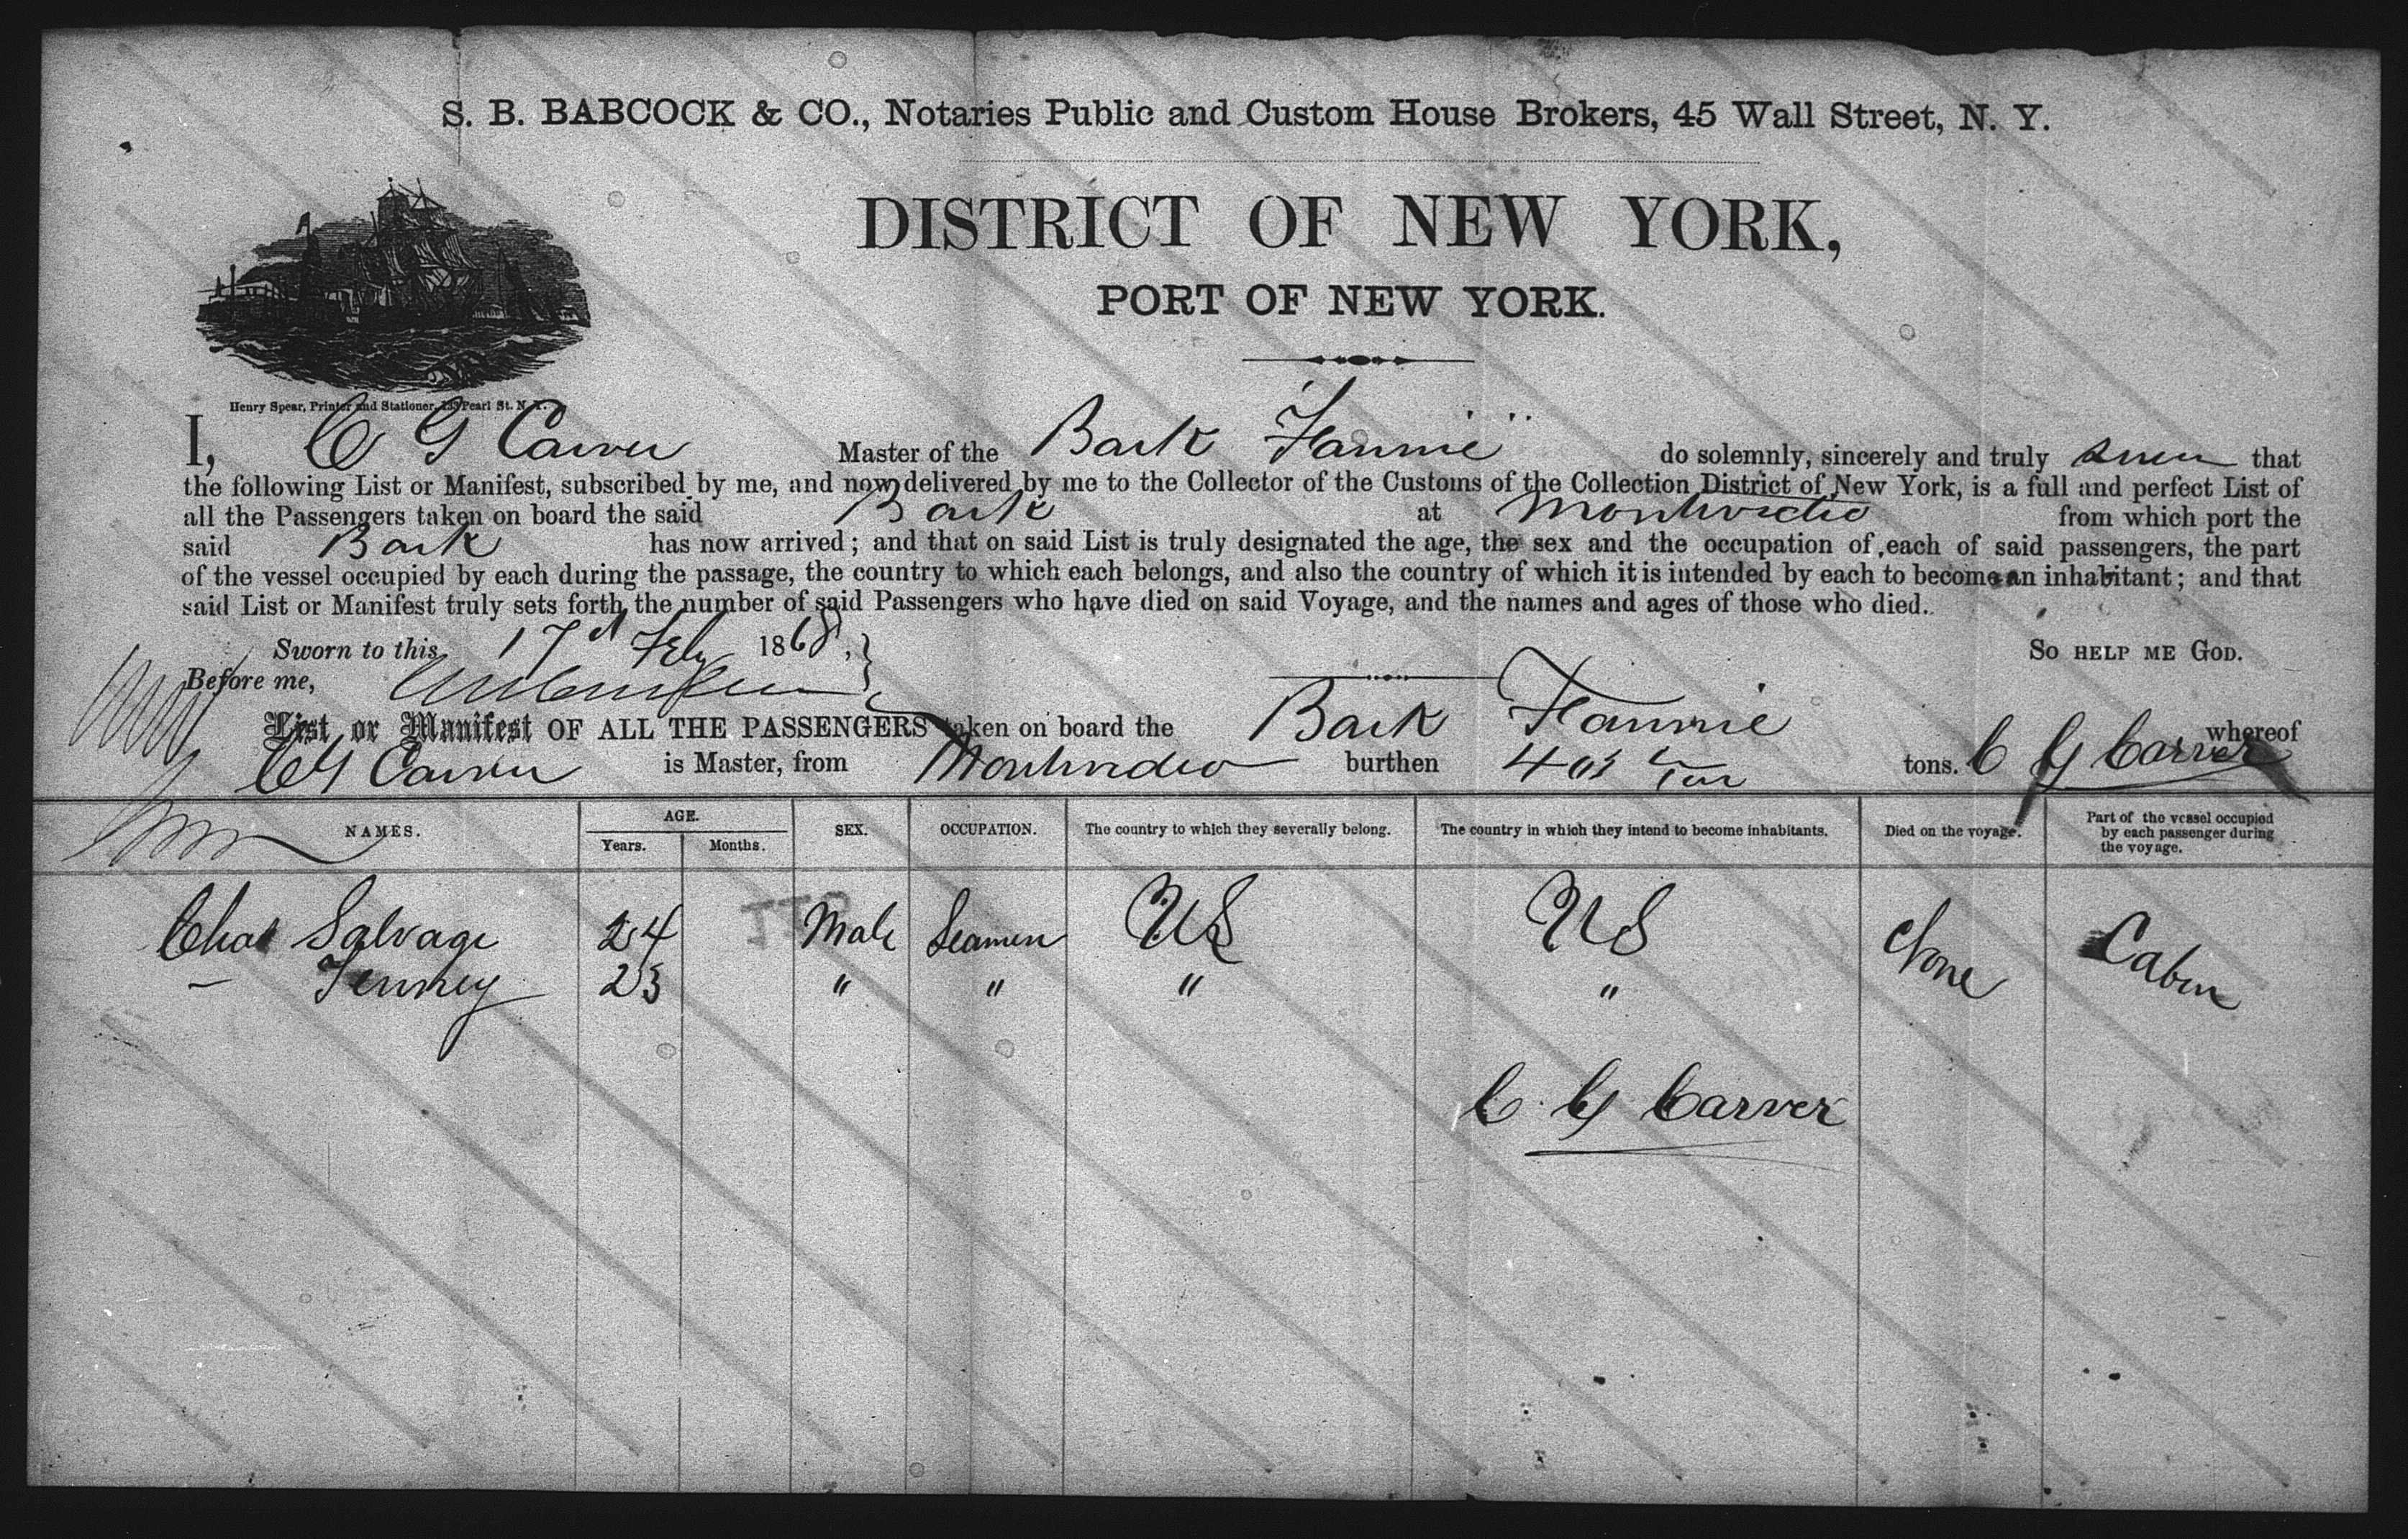 S. B. BABCOCK & CO., Notaries Public and Custom House Brokers, 45 Wall Street, N. Y.
DISTRICT OF NEW YORK,
PORT OF NEW YORK.
Henry Spear, Printer and Stationer, Pearl St. N. Y.
I, C G Carver Master of the Bark "Fannie" do solemnly, sincerely and truly swear that
the following List or Manifest, subscribed by me, and now delivered by me to the Collector of the Customs of the Collection District of New York, is a full and perfect List of
all the Passengers taken on board the said Bark at Montevideo from which port the
said Bark has now arrived; and that on said List is truly designated the age, the sex and the occupation of each of said passengers, the part
of the vessel occupied by each during the passage, the country to which each belongs, and also the country of which it is intended by each to become an inhabitant; and that
said List or Manifest truly sets forth the number of said Passengers who have died on said Voyage, and the names and ages of those who died.
Sworn to this 17th Feby 1868, SO HELP ME GOD.
Before me,
List or Manifest OF ALL THE PASSENGERS taken on board the Bark Fannie whereof
C G Carver is Master, from Montevideo burthen tons. C G Carver
NAMES. AGE. Years. Months. SEX. OCCUPATION. The country to which they severally belong. The country in which they intend to become inhabitants. Died on the voyage. Part of the vessel occupied by each passenger during the voyage.
Chas Salvage 24 Male Seamen US US None Cabin
— Tenney 23 " " " "
C. G Carver